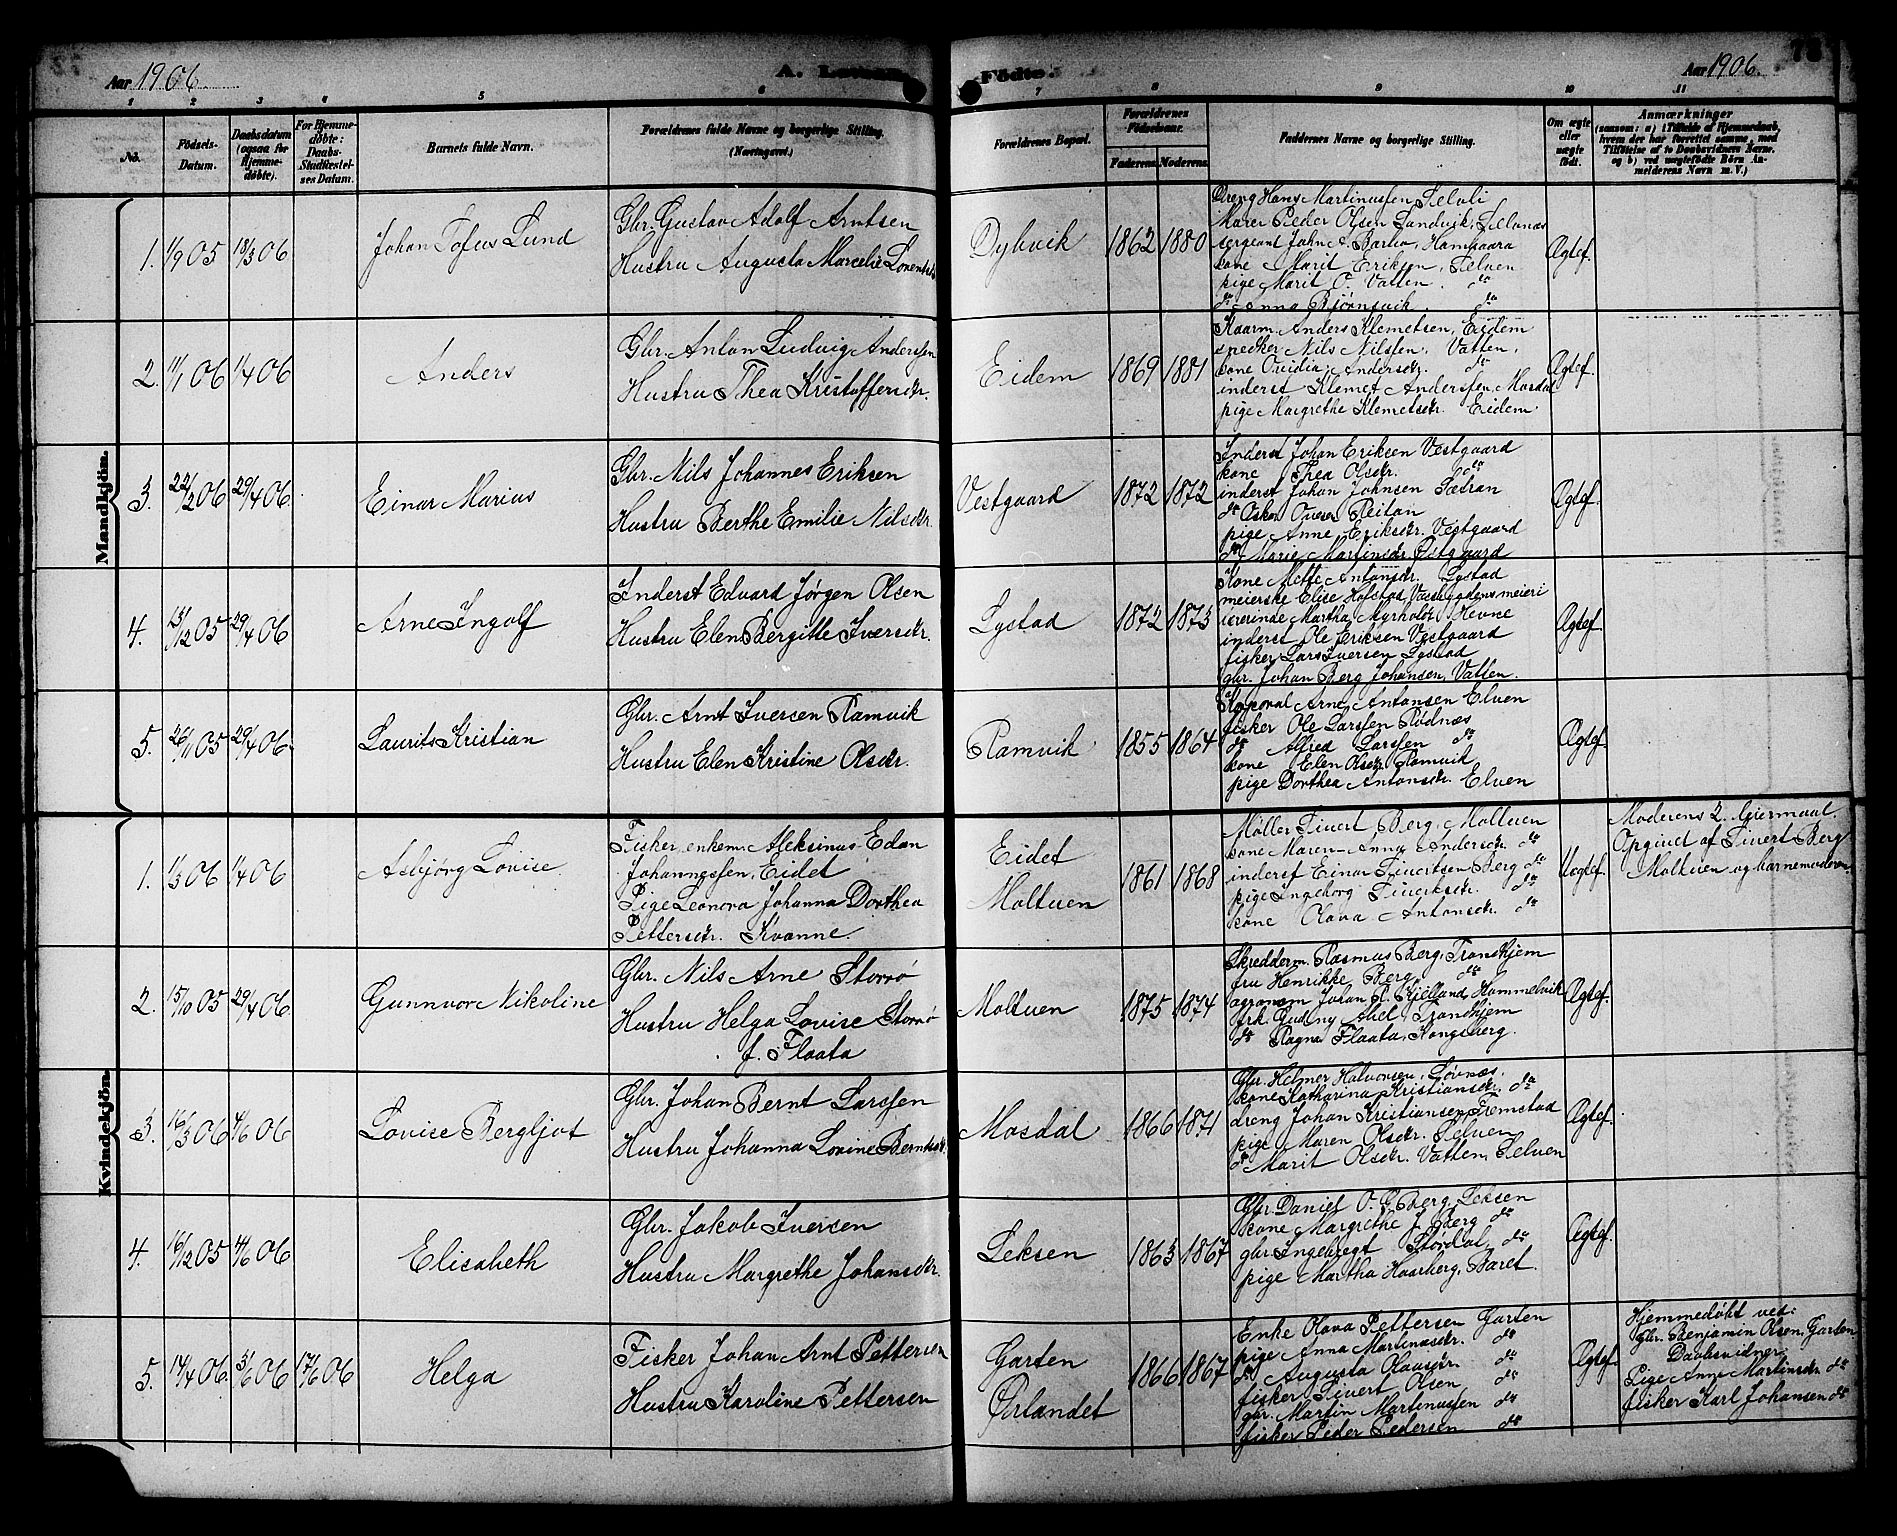 Aar 1906
A. Levende Födte.
Aar 1906.
78
1 2 3 4 5 6 7 8 9 10 11
No.
Födsels-Datum.
Daabsdatum (ogsaa for Hjemmedöbte).
For Hjemmedöbte: Daabs-Stadfæstelses Datum.
Barnets fulde Navn.
Forældrenes fulde Navne og borgerlige Stilling.
(Næringsvei.)
Forældrenes Bopæl.
Forældrenes Födselsaar.
Faderens. Moderens.
Faddernes Navne og borgerlige Stilling.
Om ægte eller uægte födt.
Anmærkninger
(saasom: a) i Tilfælde af Hjemmedaab, hvem der har forrettet samme, med Tilföielse af to Daabsvidners Navne, og b) ved uægtefödte Börn Anmelderens Navn m. V.)
Mandkjön.
1. 1/9 05 18/3 06
Johan Tofus Lund
Gbr. Gustav Adolf Arntsen
Hustru Augusta Marcelie Lorents
Dybvik
1862 1880
Dreng Hans Martinussen Selvli
Maler Peder Olsen Sandvik, Selvnes
sergeant John A. Barbo, Hamaara
kone Marit Eriksen, Selven
pige Marit O. Vatten. do
do Anna Bjørnsvik do
Ægtef.
2. 11/1 06 1/4 06
Anders
Gbr. Anton Ludvig Anderssen
Hustru Thea Kristoffersdtr.
Eidem
1869 1881
Kaarm. Anders Klemetsen, Eidem
snedker Nils Nilssen, Vatten,
kone Ovidia Andersdtr. do
inderst Klemet Anderssen, Mosdal
pige Margrethe Klemetsdtr. Eidem.
Ægtef.
3. 22/2 06 29/4 06
Einar Marius
Gbr. Nils Johannes Eriksen
Hustru Berthe Emilie Nilsdtr.
Vestgaard
1872 1872
Inderst Johan Eriksen Vestgaard
kone Thea Olsdtr. do
inderst Johan Johnsen Sætran
do Oskar Ovesen Reitan
pige Anne Eriksdtr. Vestgaard
do Marie Martinsdtr. Østgaard
Ægtef.
4. 15/12 05 29/4 06
Arne Ingolf
Inderst Edvard Jørgen Olsen
Hustru Elen Bergitte Iversdtr.
Lystad
1872 1873
Kone Mette Antonsdtr. Lystad
meierske Elise Hofstad, Vasbygdens meieri
lærerinde Martha Myrholdt, Hevne
inderst Ole Eriksen Vestgaard
fisker Lars Iversen Lystad
gbr. Johan Berg Johansen, Vatten.
Ægtef.
5. 26/11 05 29/4 06
Laurits Kristian
Gbr. Arnt Iversen Ramvik
Hustru Elen Kristine Olsdtr.
Ramvik
1855 1864
Korporal Arne Antonsen Elven
fisker Ole Larssen Rødnæs
do Alfred Larssen do
kone Elen Olsdtr. Ramvik
pige Dorthea Antonsdtr. Elven
Ægtef.
Kvindekjön.
1. 1/3 06 1/4 06
Asbjörg Lovise
Fisker, enkem. Aleksinus Edan
Johannessen, Eidet
Pige Leonora Johanna Dorthea
Pettersdtr. Kvanne.
Eidet
Moltuen
1861 1868
Møller Sivert Berg, Moltuen
kone Maren Anna Andersdtr. do
inderst Einar Sivertsen Berg do
pige Ingeborg Sivertsdtr. do
kone Olava Antonsdtr. do
Uægtef.
Moderens 2. leiermaal.
Opgivet af Sivert Berg
Moltuen og barnemoderen
2. 15/10 05 29/4 06
Gunnvor Nikoline
Gbr. Nils Arne Storrø
Hustru Helga Lovise Storrø
f. Flaata
Moltuen
1875 1874
Skredderm. Rasmus Berg, Trondhjem
fru Henrikke Berg do
agronom Johan R. Kjelland, Hammelvik
frk. Gudny Abel Trondhjem
do Ragna Flaata, Kongsberg.
Ægtef.
3. 16/3 06 4/6 06
Lovise Bergljot
Gbr. Johan Bernt Larssen
Hustru Johanna Lovine Berntsdtr.
Mosdal
1866 1871
Gbr. Helmer Halvorsen, Løvnæs,
kone Katharina Kristiansdtr. do
dreng Johan Kristiansen, Fremstad
pige Maren Olsdtr. Selven
do Marit Olsdtr. Vatten, Selven
Ægtef.
4. 16/12 05 4/6 06
Elisabeth
Gbr. Jakob Iversen
Hustru Margrethe Johansdtr.
Leksen
1863 1867
Gbr. Daniel O. Berg, Leksen
kone Margrethe J. Berg do
gbr. Ingebregt Stördal, do
pige Martha Haarberg, Baret.
Ægtef.
5. 14/4 06 3/6 06 17/6 06
Helga
Fisker Johan Arnt Pettersen
Hustru Karoline Pettersen
Garten
Ørlandet
1866 1867
Enke Olava Pettersen Garten
pige Anna Martinasdtr. do
do Augusta Olausdtr do
fisker Sivert Olsen do
gbr. Martin Martinussen do
fisker Peder Pedersen do
Ægtef.
Hjemmedøbt ved:
Gbr. Benjamin Olsen, Garten
Daabsvidner
Pige Anne Martinsdtr do
fisker Karl Johansen do